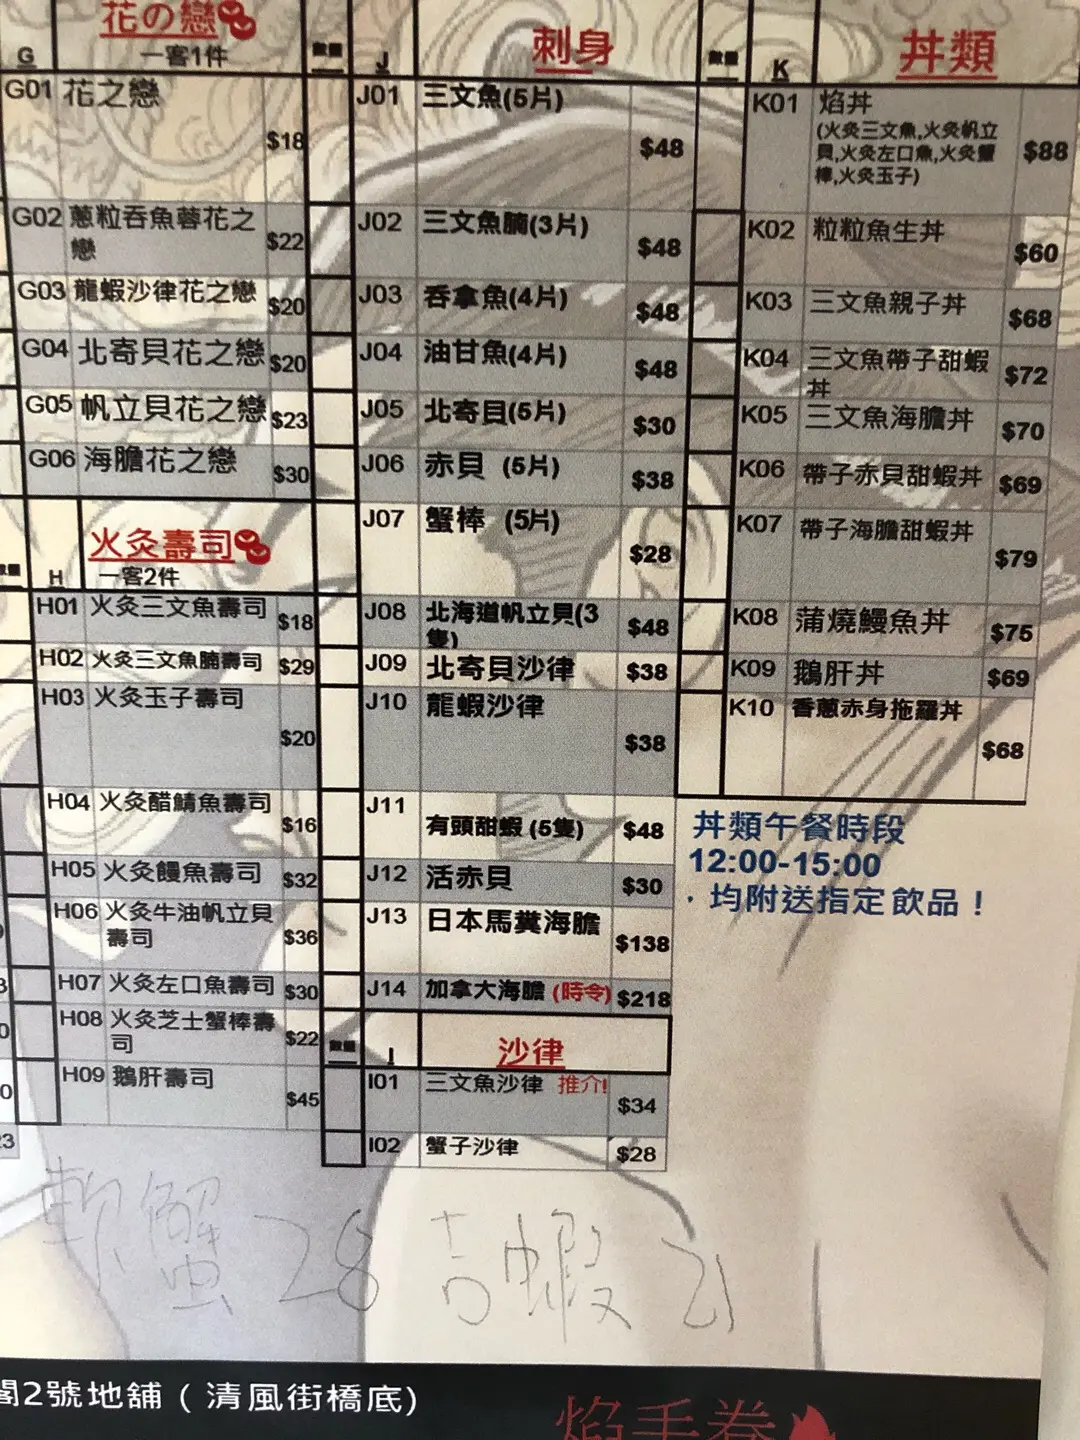 花の戀
G 一客1件
G01 花之戀 $18
G02 蔥粒吞魚蓉花之
戀 $22
G03 龍蝦沙律花之戀 $20
G04 北寄貝花之戀 $20
G05 帆立貝花之戀 $23
G06 海膽花之戀 $30
火灸壽司
數量 H 一客2件
H01 火灸三文魚壽司 $18
H02 火灸三文魚腩壽司 $29
H03 火灸玉子壽司 $20
H04 火灸醋鯖魚壽司 $16
H05 火灸饅魚壽司 $32
H06 火灸牛油帆立貝
壽司 $36
H07 火灸左口魚壽司 $30
H08 火灸芝士蟹棒壽
司 $22
H09 鵝肝壽司 $45
數量 J 刺身
J01 三文魚(5片) $48
J02 三文魚腩(3片) $48
J03 吞拿魚(4片) $48
J04 油甘魚(4片) $48
J05 北寄貝(5片) $30
J06 赤貝 (5片) $38
J07 蟹棒 (5片) $28
J08 北海道帆立貝(3
隻) $48
J09 北寄貝沙律 $38
J10 龍蝦沙律 $38
J11 有頭甜蝦 (5隻) $48
J12 活赤貝 $30
J13 日本馬糞海膽 $138
J14 加拿大海膽 (時令) $218
數量 I 沙律
I01 三文魚沙律 推介! $34
I02 蟹子沙律 $28
數量 K 丼類
K01 焰丼
(火灸三文魚,火灸帆立
貝,火灸左口魚,火灸蟹
棒,火灸玉子) $88
K02 粒粒魚生丼 $60
K03 三文魚親子丼 $68
K04 三文魚帶子甜蝦
丼 $72
K05 三文魚海膽丼 $70
K06 帶子赤貝甜蝦丼 $69
K07 帶子海膽甜蝦丼 $79
K08 蒲燒鰻魚丼 $75
K09 鵝肝丼 $69
K10 香蔥赤身拖羅丼 $68
丼類午餐時段
12:00-15:00
· 均附送指定飲品！
軟蟹 28 吉蝦 21
閣2號地舖 ( 清風街橋底)
焰手卷